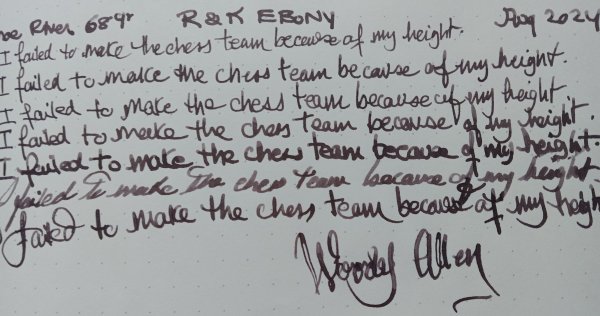 River 689r R & K EBONY Aug 2024
I failed to make the chess team because of my height.
I failed to make the chess team because of my height.
I failed to make the chess team because of my height
I failed to make the chess team because of my height.
I failed to make the chess team because of my height.
I failed to make the chess team because of my height.
failed to make the chess team because of my heigh
Woody Allen